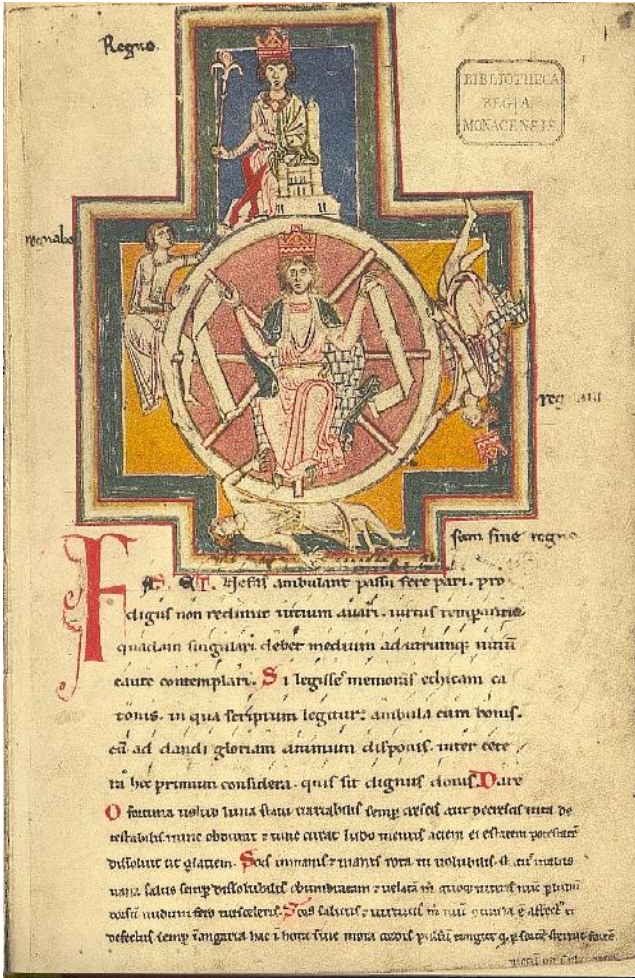 Regno
BIBLIOTHECA
REGIA
MONACENSIS.
regnabo
sum sine regno
FAS ET Nefas ambulant passu fere pari. pro
digus non redimit uitium auari. uirtus temperantia
quadam singulari debet medium ad utrumq; uitiū
caute contemplari. Si legisse memoras ethicam ca
tonis. in qua scriptum legitur: ambula cum bonis.
cū ad dandi gloriam animum disponis. inter cete
ra hoc primum considera. quis sit dignus donis. Dare
O fortuna uelud luna statu uariabilis semp crescis aut decrescis uita de
testabilis nunc obdurat & tunc curat ludo mentis aciem egestatem potestatē
dissoluit ut glaciem. Sors inmanis & inanis rota tu uolubilis status malus
uana salus semp dissolubilis obumbratam & uelatam
dorsū nudum fero tui sceleris. Sors salutis & uirtutis
defectus semp in angaria hac in hora sine mora